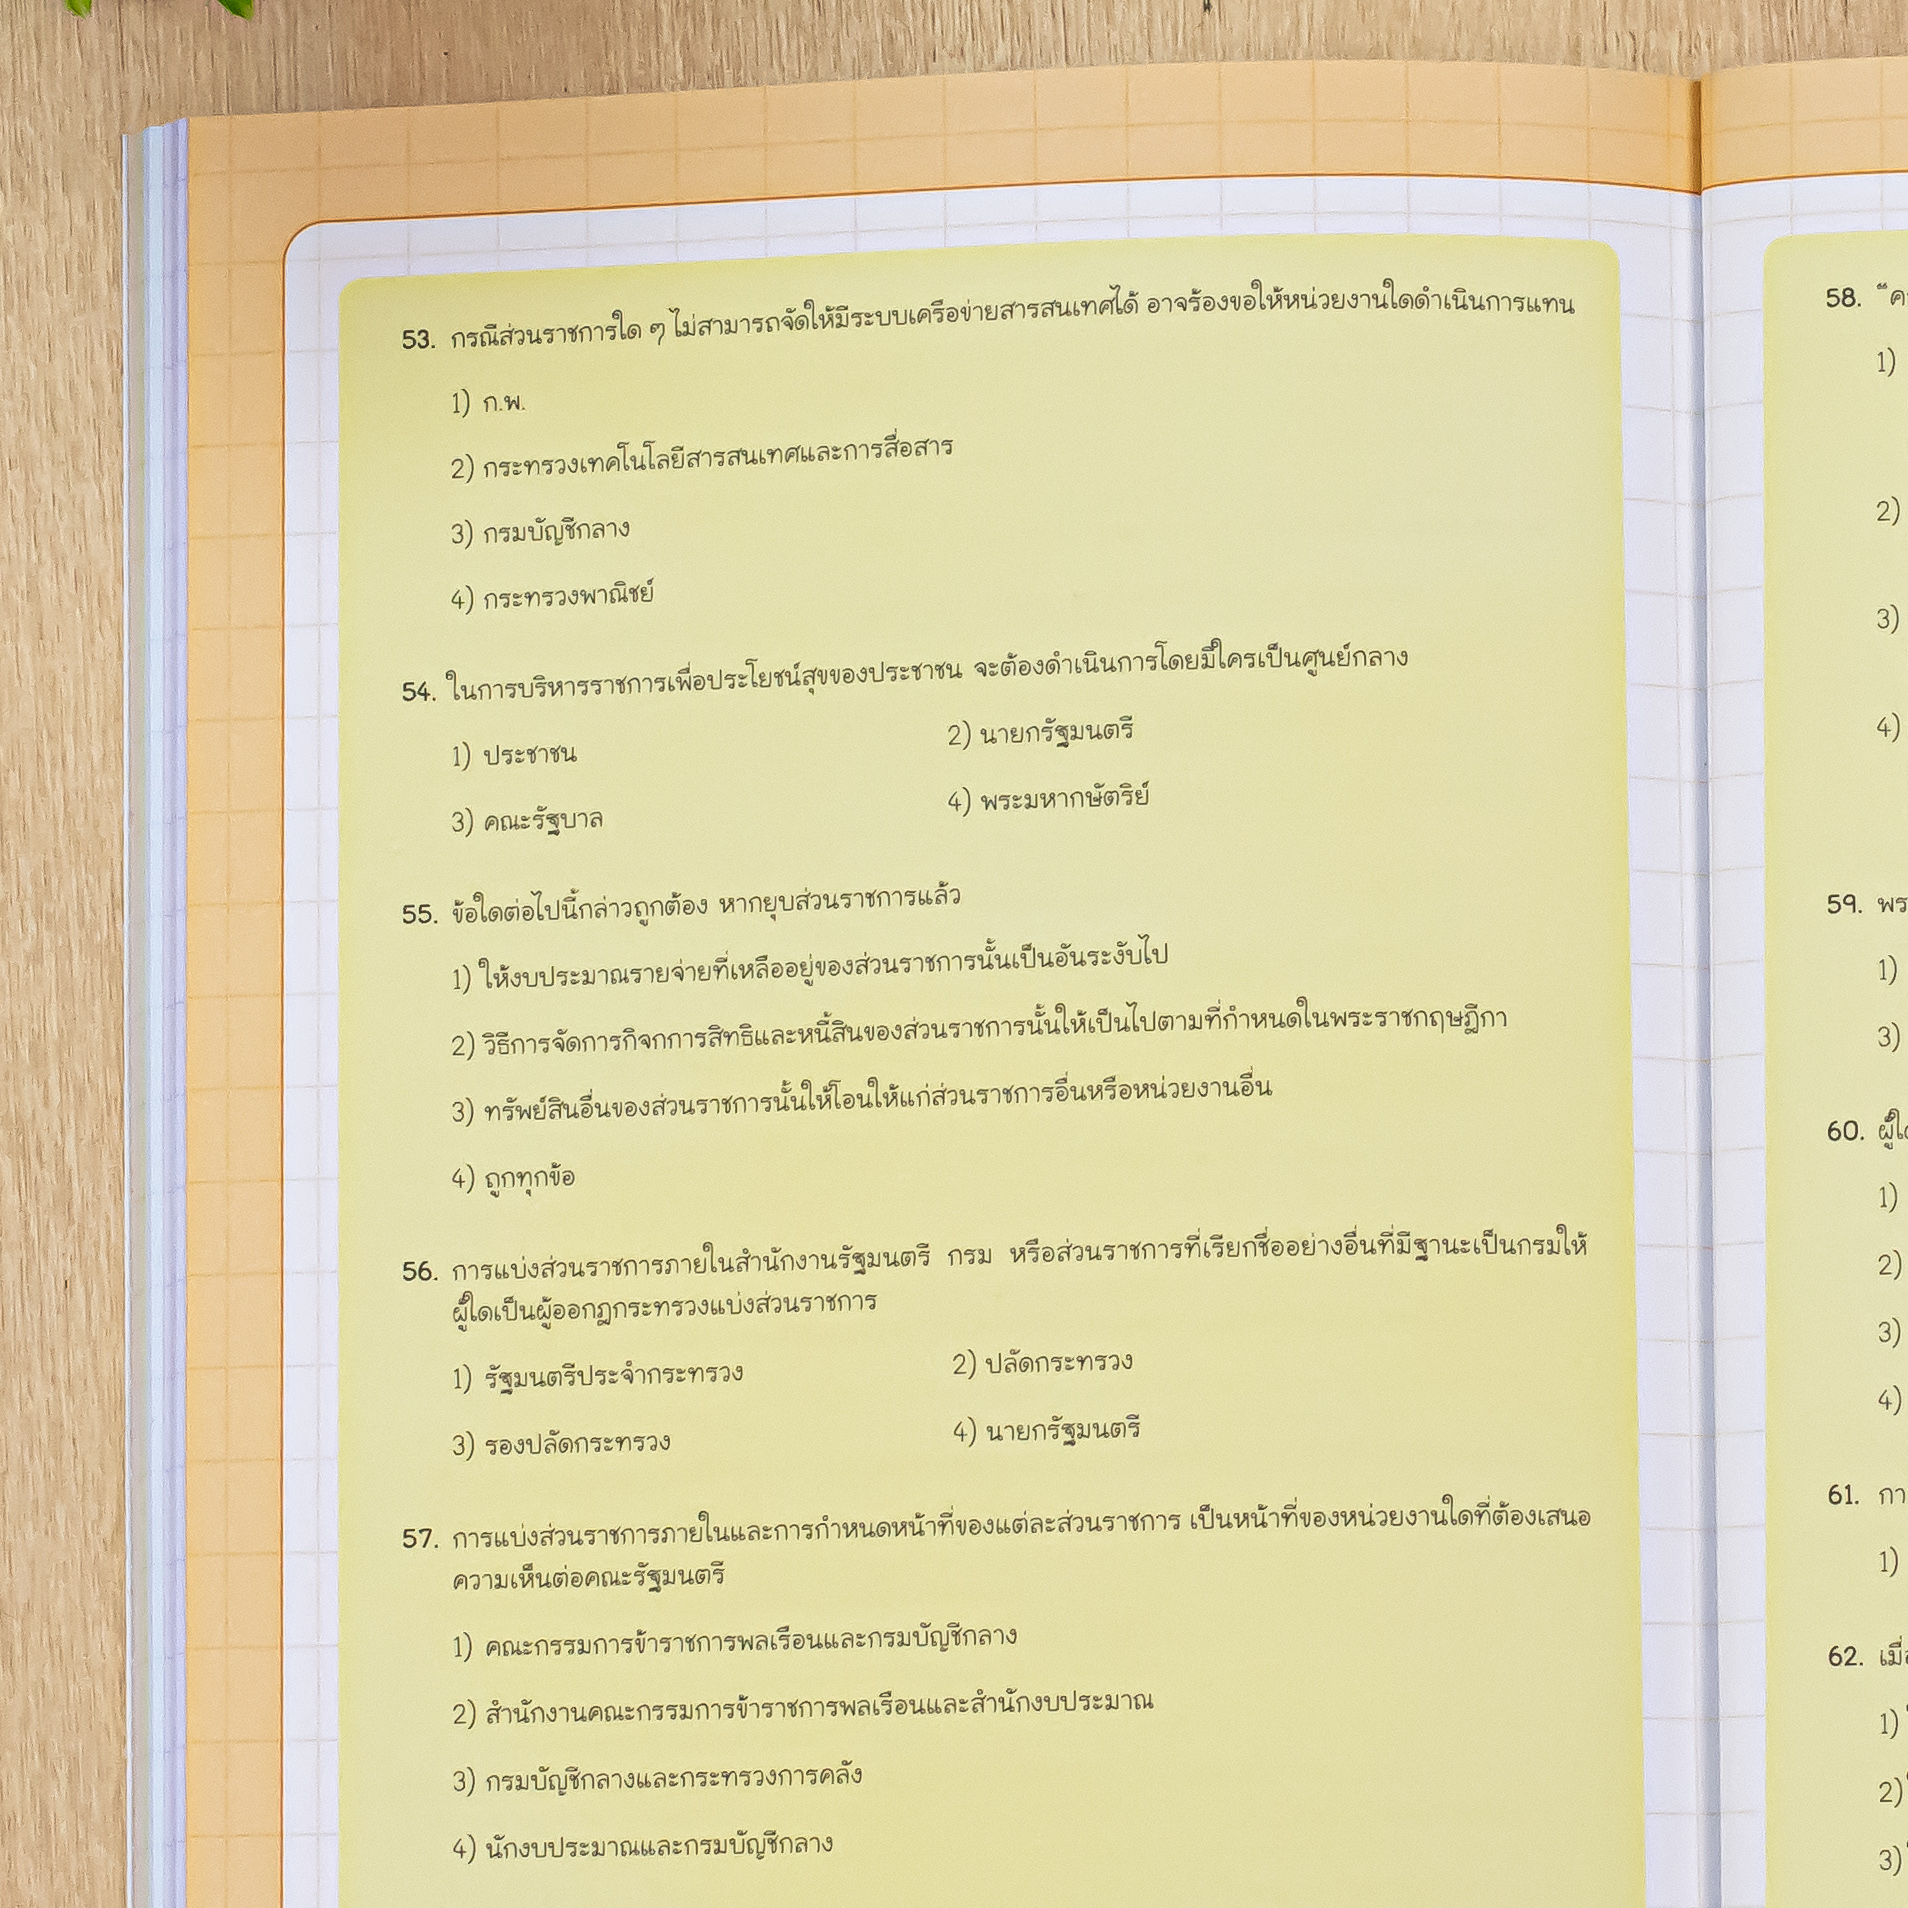 53. กรณีส่วนราชการใด ๆ ไม่สามารถจัดให้มีระบบเครือข่ายสารสนเทศได้ อาจร้องขอให้หน่วยงานใดดำเนินการแทน
1) ก.พ.
2) กระทรวงเทคโนโลยีสารสนเทศและการสื่อสาร
3) กรมบัญชีกลาง
4) กระทรวงพาณิชย์
54. ในการบริหารราชการเพื่อประโยชน์สุขของประชาชน จะต้องดำเนินการโดยมีใครเป็นศูนย์กลาง
1) ประชาชน 2) นายกรัฐมนตรี
3) คณะรัฐบาล 4) พระมหากษัตริย์
55. ข้อใดต่อไปนี้กล่าวถูกต้อง หากยุบส่วนราชการแล้ว
1) ให้งบประมาณรายจ่ายที่เหลืออยู่ของส่วนราชการนั้นเป็นอันระงับไป
2) วิธีการจัดการกิจกการสิทธิและหนี้สินของส่วนราชการนั้นให้เป็นไปตามที่กำหนดในพระราชกฤษฎีกา
3) ทรัพย์สินอื่นของส่วนราชการนั้นให้โอนให้แก่ส่วนราชการอื่นหรือหน่วยงานอื่น
4) ถูกทุกข้อ
56. การแบ่งส่วนราชการภายในสำนักงานรัฐมนตรี กรม หรือส่วนราชการที่เรียกชื่ออย่างอื่นที่มีฐานะเป็นกรมให้
ผู้ใดเป็นผู้ออกกฎกระทรวงแบ่งส่วนราชการ
1) รัฐมนตรีประจำกระทรวง 2) ปลัดกระทรวง
3) รองปลัดกระทรวง 4) นายกรัฐมนตรี
57. การแบ่งส่วนราชการภายในและการกำหนดหน้าที่ของแต่ละส่วนราชการ เป็นหน้าที่ของหน่วยงานใดที่ต้องเสนอ
ความเห็นต่อคณะรัฐมนตรี
1) คณะกรรมการข้าราชการพลเรือนและกรมบัญชีกลาง
2) สำนักงานคณะกรรมการข้าราชการพลเรือนและสำนักงบประมาณ
3) กรมบัญชีกลางและกระทรวงการคลัง
4) นักงบประมาณและกรมบัญชีกลาง
58.
1)
2)
3)
4)
59.
1)
3)
60.
1)
2)
3)
4)
61.
1)
62.
1)
2)
3)